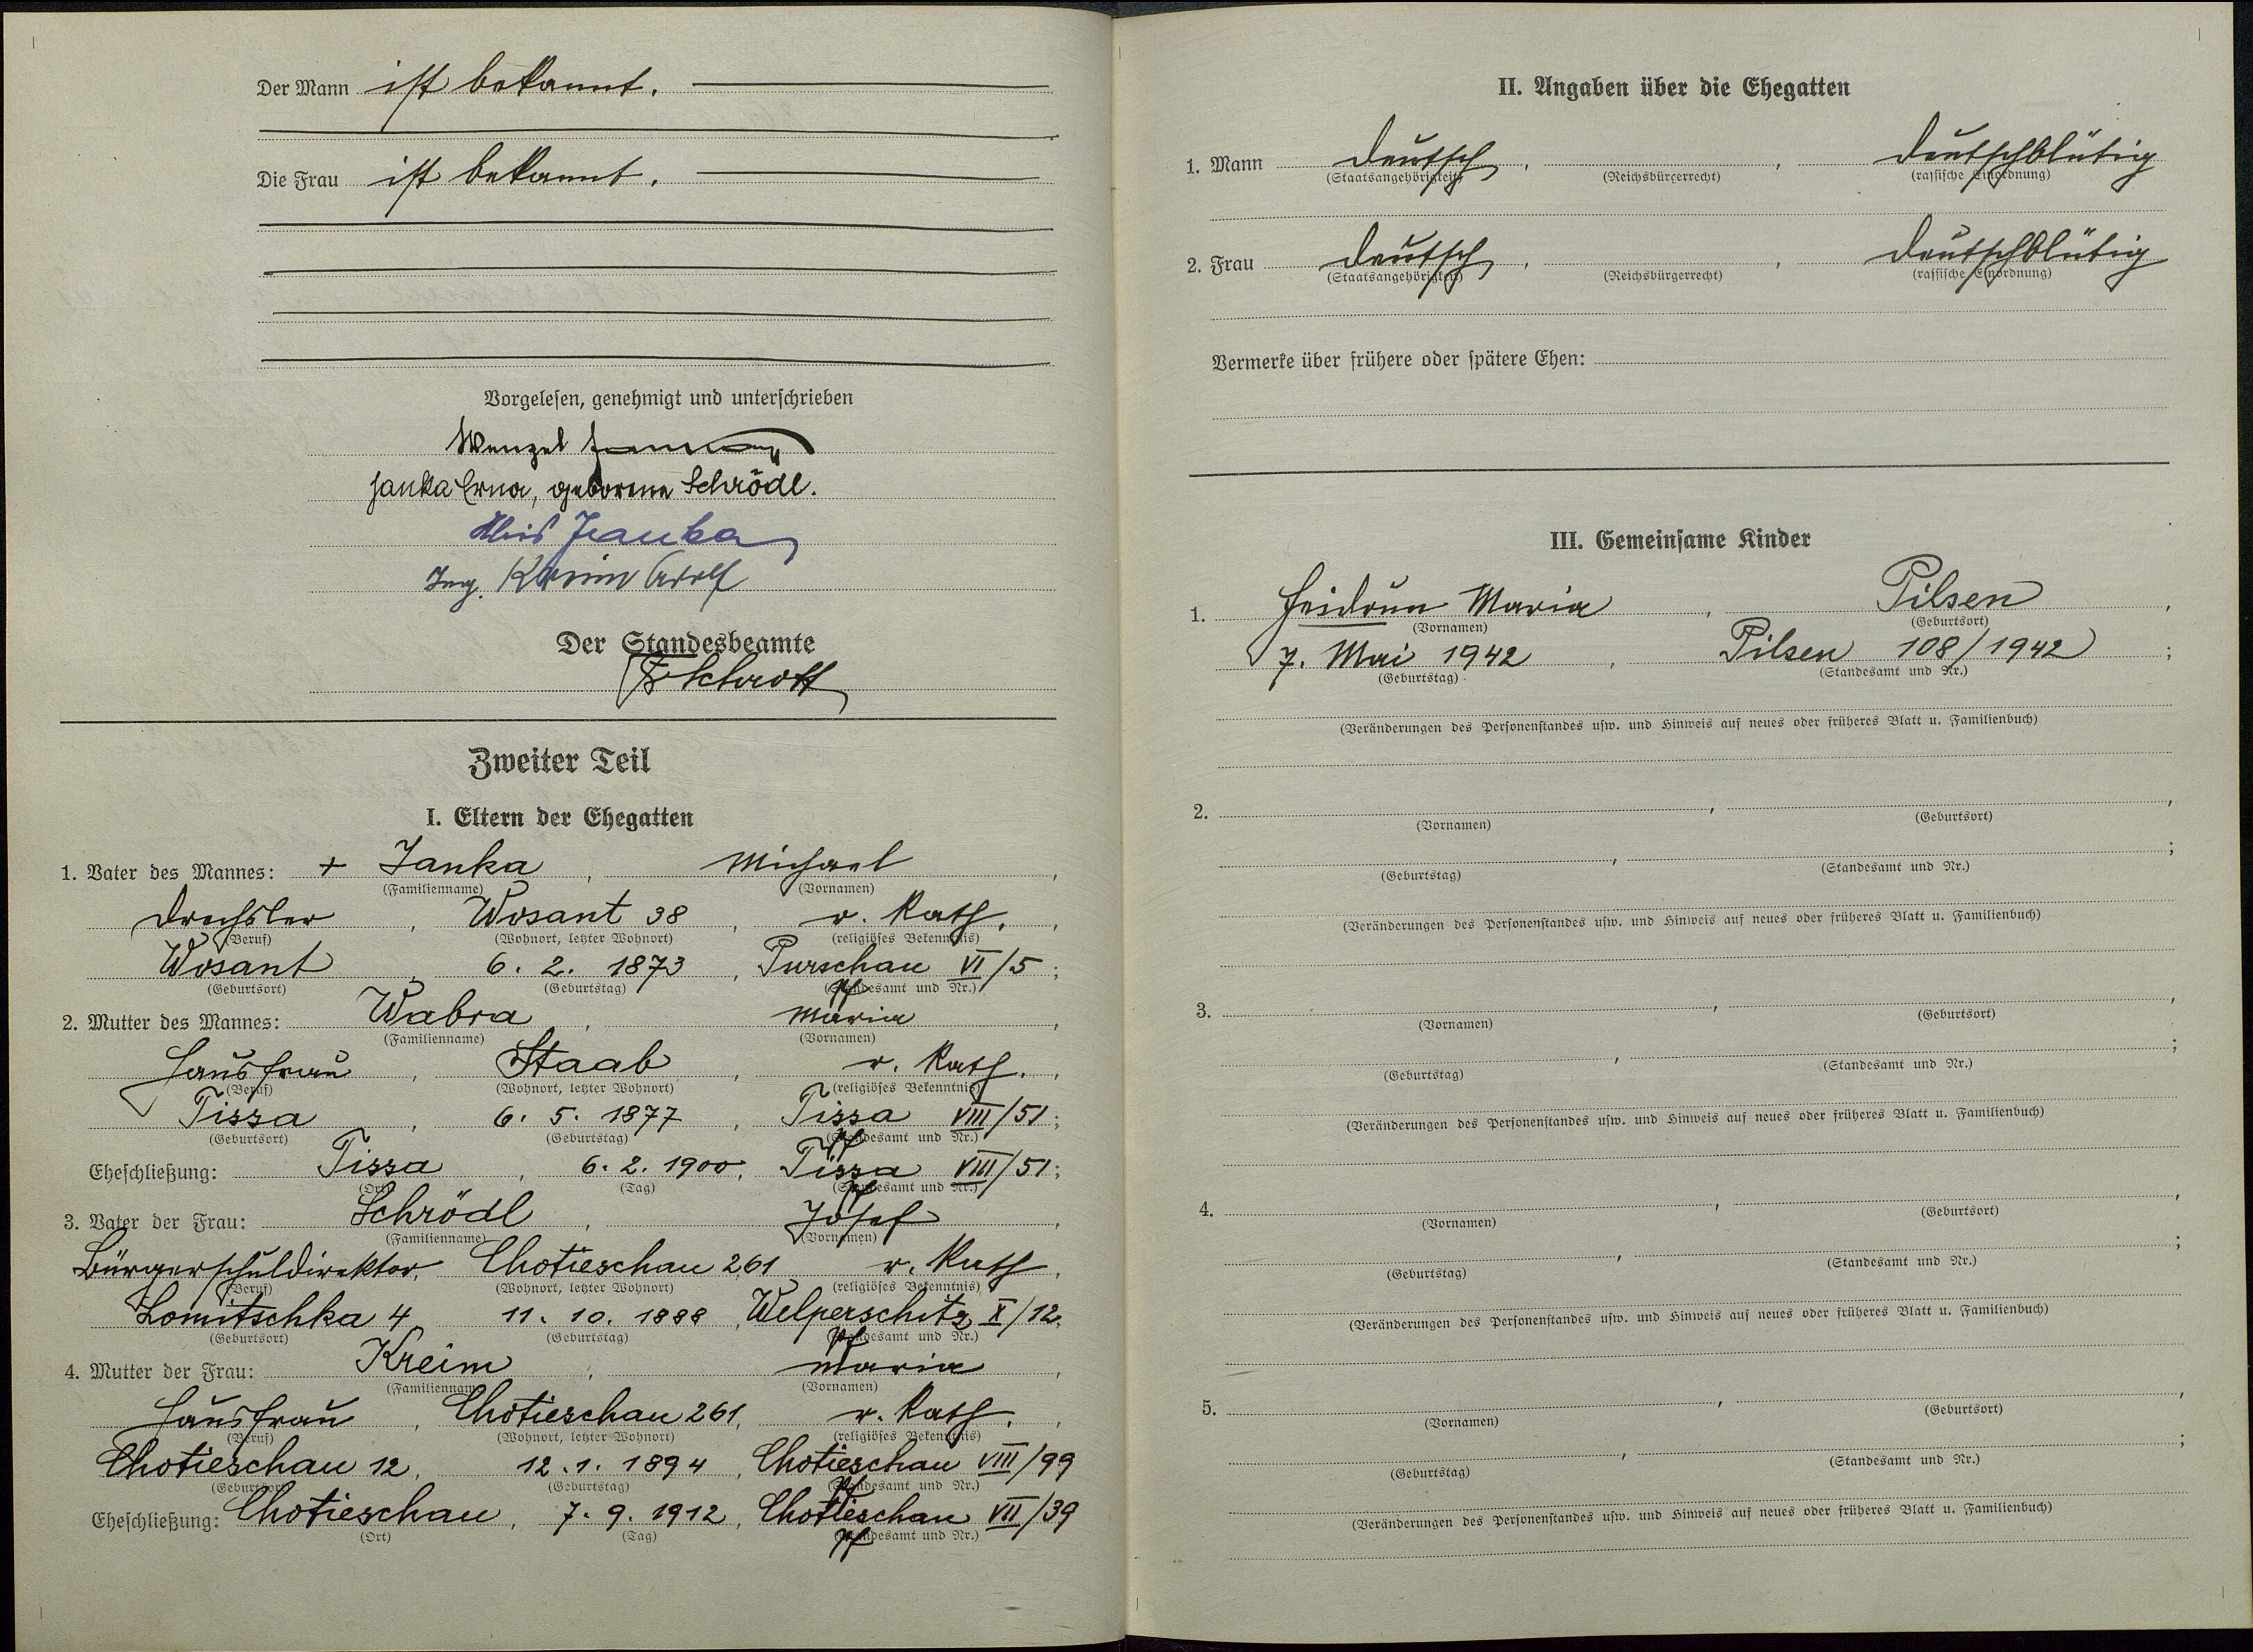 Der Mann ist bekannt.
Die Frau ist bekannt.
Vorgelesen, genehmigt und unterschrieben
Wenzel
Janka Erna, geborene Schrödl.
Alois Janka
Ing. Kreim Adolf
Der Standesbeamte
Zweiter Teil
I. Eltern der Ehegatten
1. Vater des Mannes: + Janka, Michael,
(Familienname) (Vornamen)
Drechsler, Wosant 38, r. kath.,
(Beruf) (Wohnort, letzter Wohnort) (religiöses Bekenntnis)
Wosant, 6. 2. 1873, Purschau VI/5;
(Geburtsort) (Geburtstag) (Standesamt und Nr.)
2. Mutter des Mannes: Wabra, Maria,
(Familienname) (Vornamen)
Hausfrau, Staab, r. kath.,
(Beruf) (Wohnort, letzter Wohnort) (religiöses Bekenntnis)
Tissa, 6. 5. 1877, Tissa VIII/51;
(Geburtsort) (Geburtstag) (Standesamt und Nr.)
Eheschließung: Tissa, 6. 2. 1900, Tissa VIII/51;
(Ort) (Tag) (Standesamt und Nr.)
3. Vater der Frau: Schrödl, Josef,
(Familienname) (Vornamen)
Bürgerschuldirektor, Chotieschau 261, r. kath,
(Beruf) (Wohnort, letzter Wohnort) (religiöses Bekenntnis)
Lomitschka 4, 11. 10. 1888, Welperschitz X/12;
(Geburtsort) (Geburtstag) (Standesamt und Nr.)
4. Mutter der Frau: Kreim, Maria,
(Familienname) (Vornamen)
Hausfrau, Chotieschau 261, r. kath.,
(Beruf) (Wohnort, letzter Wohnort) (religiöses Bekenntnis)
Chotieschau 12, 12. 1. 1894, Chotieschau VIII/99
(Geburtsort) (Geburtstag) (Standesamt und Nr.)
Eheschließung: Chotieschau, 7. 9. 1912, Chotieschau VII/39
(Ort) (Tag) (Standesamt und Nr.)
II. Angaben über die Ehegatten
1. Mann deutsch, , deutschblütig
(Staatsangehörigkeit) (Reichsbürgerrecht) (rassische Einordnung)
2. Frau deutsch, , deutschblütig
(Staatsangehörigkeit) (Reichsbürgerrecht) (rassische Einordnung)
Vermerke über frühere oder spätere Ehen:
III. Gemeinsame Kinder
1. Heidrun Maria, Pilsen,
(Vornamen) (Geburtsort)
7. Mai 1942, Pilsen 108/1942;
(Geburtstag) (Standesamt und Nr.)
(Veränderungen des Personenstandes usw. und Hinweis auf neues oder früheres Blatt u. Familienbuch)
2. , ,
(Vornamen) (Geburtsort)
, ;
(Geburtstag) (Standesamt und Nr.)
(Veränderungen des Personenstandes usw. und Hinweis auf neues oder früheres Blatt u. Familienbuch)
3. , ,
(Vornamen) (Geburtsort)
, ;
(Geburtstag) (Standesamt und Nr.)
(Veränderungen des Personenstandes usw. und Hinweis auf neues oder früheres Blatt u. Familienbuch)
4. , ,
(Vornamen) (Geburtsort)
, ;
(Geburtstag) (Standesamt und Nr.)
(Veränderungen des Personenstandes usw. und Hinweis auf neues oder früheres Blatt u. Familienbuch)
5. , ,
(Vornamen) (Geburtsort)
, ;
(Geburtstag) (Standesamt und Nr.)
(Veränderungen des Personenstandes usw. und Hinweis auf neues oder früheres Blatt u. Familienbuch)